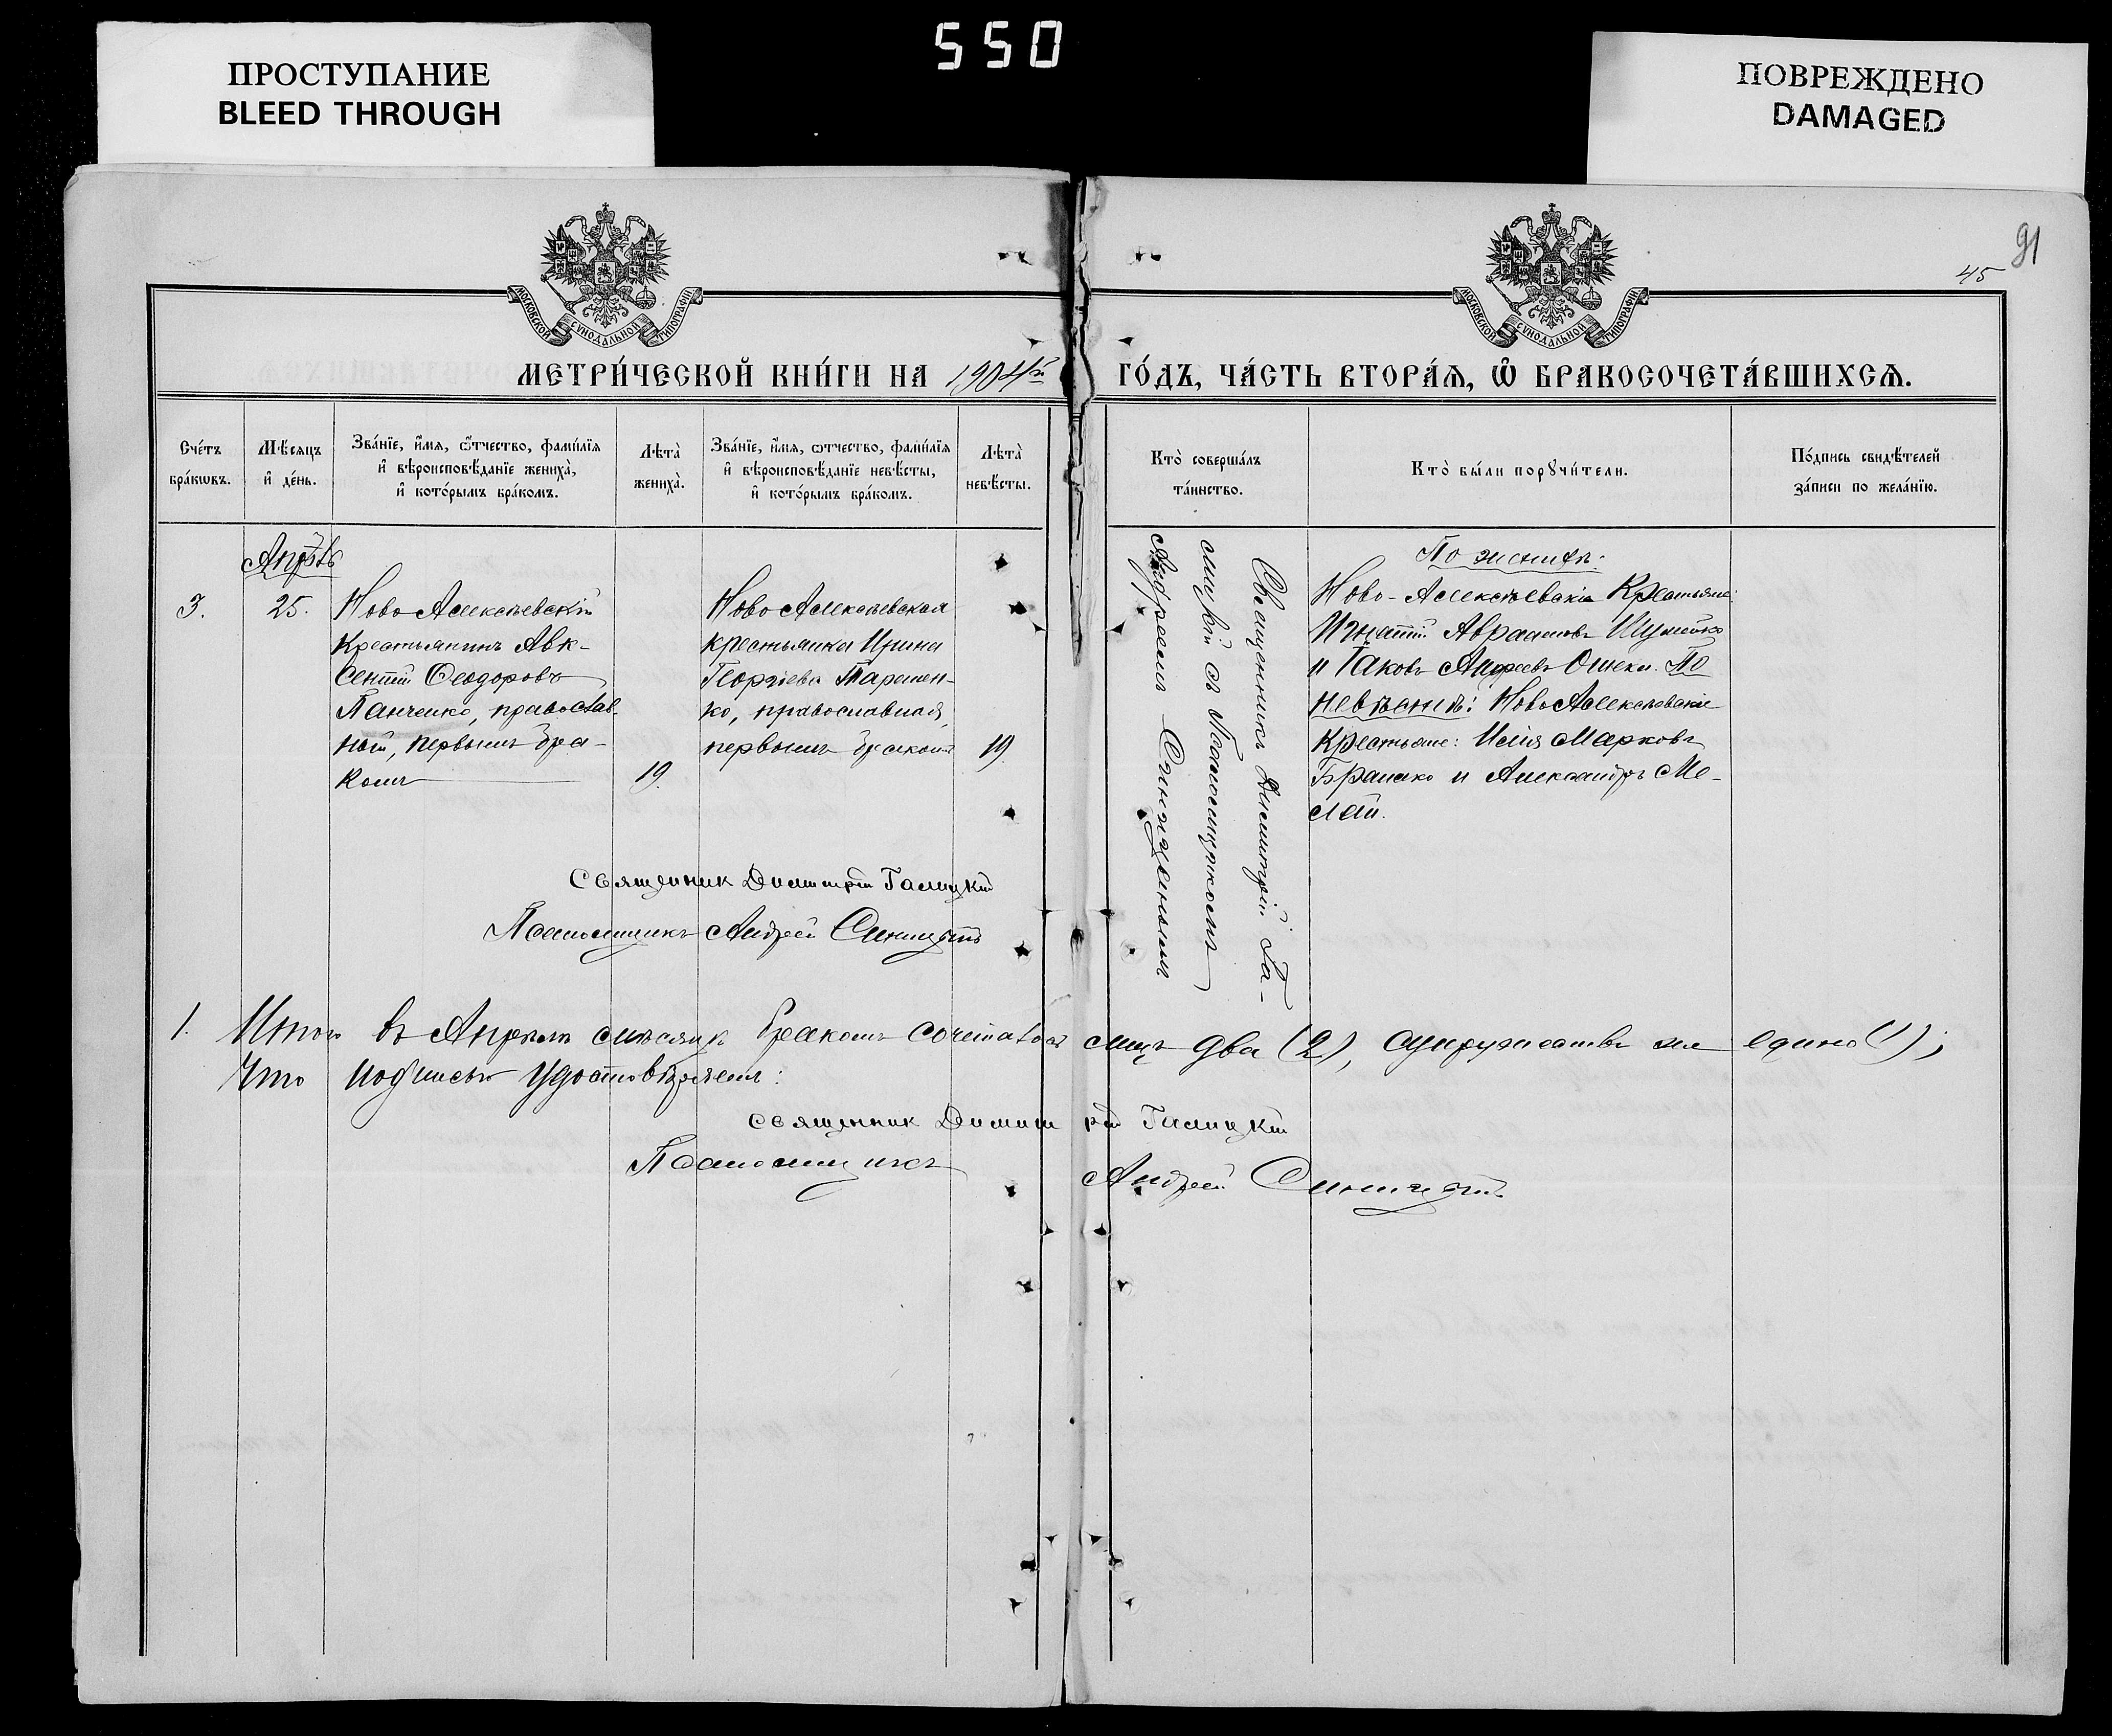 550
ПРОСТУПАНИЕ
BLEED THROUGH
ПОВРЕЖДЕНО
DAMAGED
91
45
МОСКОВСКОЙ СѴНОДАЛЬНОЙ ТИПОГРАФІИ
МОСКОВСКОЙ СѴНОДАЛЬНОЙ ТИПОГРАФІИ
МЕТРИ́ЧЕСКОЙ КНИ́ГИ НА 1904й ГО́ДЪ, ЧА́СТЬ ВТОРА́Ѧ, Ѡ҆ БРАКОСОЧЕТА́ВШИХСѦ.
Сче́тъ
бра́кѡвъ.
Мѣ́сяцъ
и҆ де́нь.
Зва́нїе, и҆́мѧ, ѻ҆́тчество, фами́лїѧ
и҆ вѣроисповѣ́данїе жениха̀,
и҆ кото́рымъ бра́комъ.
Лѣта̀
жениха̀.
Зва́нїе, и҆́мѧ, ѻтчество, фами́лїѧ
и҆ вѣроисповѣ́данїе невѣ́сты,
и҆ кото́рымъ бра́комъ.
Лѣта̀
невѣ́сты.
Кто̀ соверша́лъ
та́инство.
Кто̀ бы́ли порꙋчи́тели.
По́дпись свидѣ́телей
за́писи по жела́нїю.
Апрѣль
3.
25.
Ново Алексѣевскій
крестьянинъ Авк-
сентій Ѳеодоровъ
Панченко, православ-
ный, первымъ бра-
комъ
19.
Ново Алексѣевская
крестьянка Ирина
Георгіева Тарашен-
ко, православная,
первымъ бракомъ
19
Священникъ Димитрій Га-
лицкій съ Псаломщикомъ
Андреемъ
По женихѣ:
Ново-Алексѣевскіе Крестьяне:
Игнатій Авраамовъ
и Іаковъ Андреевъ По
невѣстѣ: Ново Алексѣевскіе
Крестьяне: Илія Марковъ
и Александръ Ме-
лай.
Священник Димитрій Галицкій
Псаломщикъ Андрей
1. Итого въ Апрѣлѣ мѣсяцѣ бракомъ сочеталось лицъ два (2), супружества же едино (1);
Что подписью удостовѣряемъ:
Священник Димитрій Галицкій
Псаломщикъ Андрей